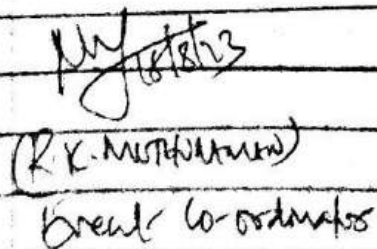 18/8/23
(R.K. MUTHURAMAN)
Co-ordinator